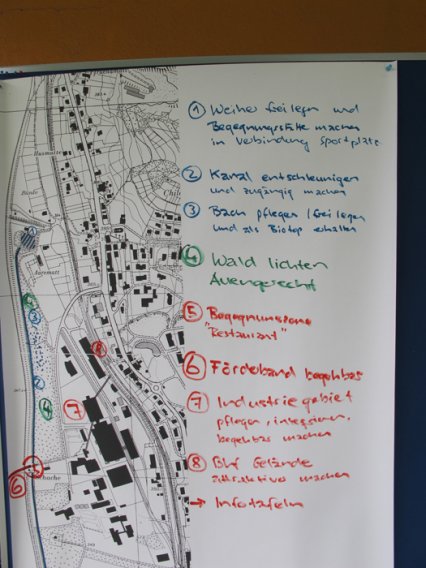 1 Weiher freilegen und
Begegnungsstätte machen
in Verbindung Sportplatz
2 Kanal entschleunigen
und zugängig machen
3 Bach pflegen / freilegen
und als Biotop erhalten
4 Wald lichten
Auengerecht
5 Begegnungszone
"Restaurant"
6 Förderband begehbar
7 Industriegebiet
pflegen, integrieren,
begehbar machen
8 Bhf Gelände
attraktiver machen
→ Infotafeln
Aumatt
1
4
3
2
4
8
7
5
6